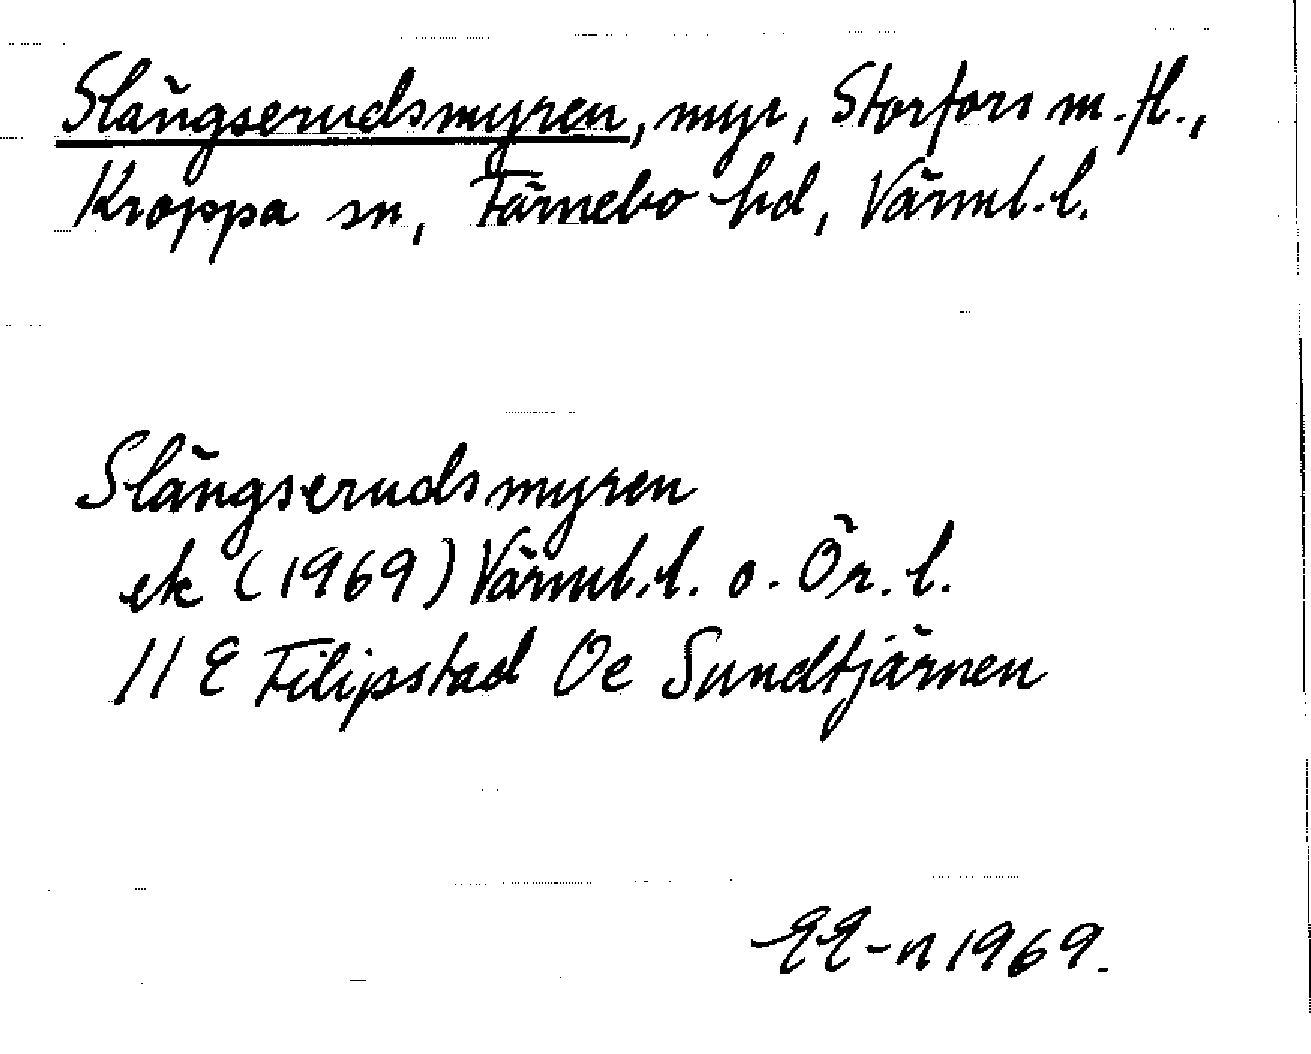 Slängserudsmyren, myr, Storfors m.fl.,
Kroppa sn, Färnebo hd, Värml.l.
Slängserudsmyren
ek (1969) Värml.l. o. Ör.l.
11 E Filipstad Oe Sundtjärnen
EE-n 1969.